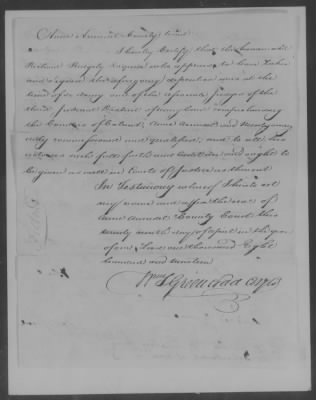 Anne Arundel County to wit
I hereby Certify that the honorable
Richard Ridgely Esquire who appears to have taken
and signed the aforegoing deposition was at the
time of so doing one of the associate judges of the
third Judicial District of maryland comprehending
the Counties of Calvert, Anne Arundel and Montgomery
duly commissioned and qualified, and to all his
acts as such full faith and Credit is and ought to
be given as well in Courts of Justice as thereout
In Testimony whereof I have set
my name and affix the seal of
Anne Arundel County Court this
twenty ninth day of in the year
of our Lord one thousand Eight
hundred and nineteen
Wm S Green